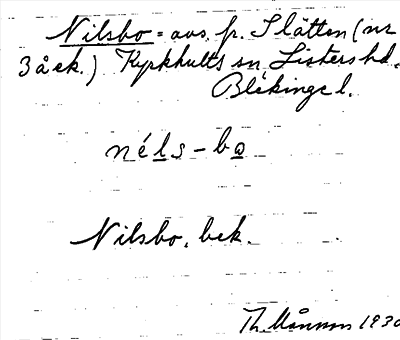 Nilsbo = avs. fr. Slätten (nr
3 å ek.) Kyrkhults sn Listers hd.
Blekinge l.
néls-bo
Nilsbo, bek.
Th. Månsson 1930